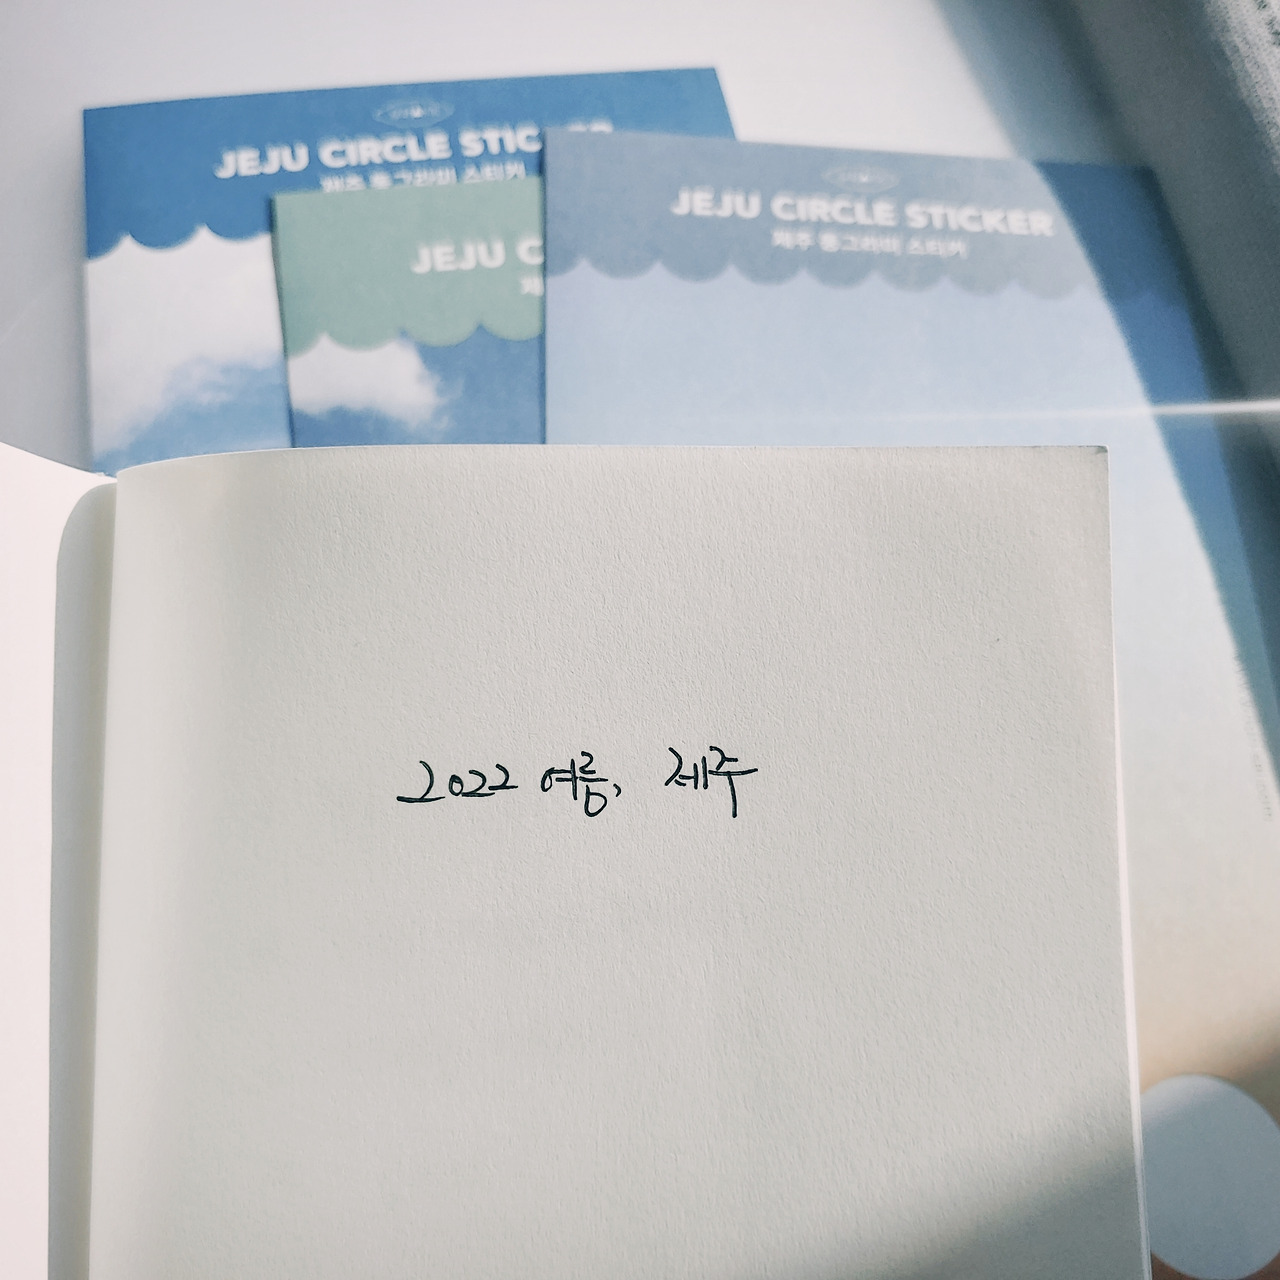 JEJU CIRCLE STIC
제주 동그라미 스티커
JEJU C
제
JEJU CIRCLE STICKER
제주 동그라미 스티커
2022 여름, 제주